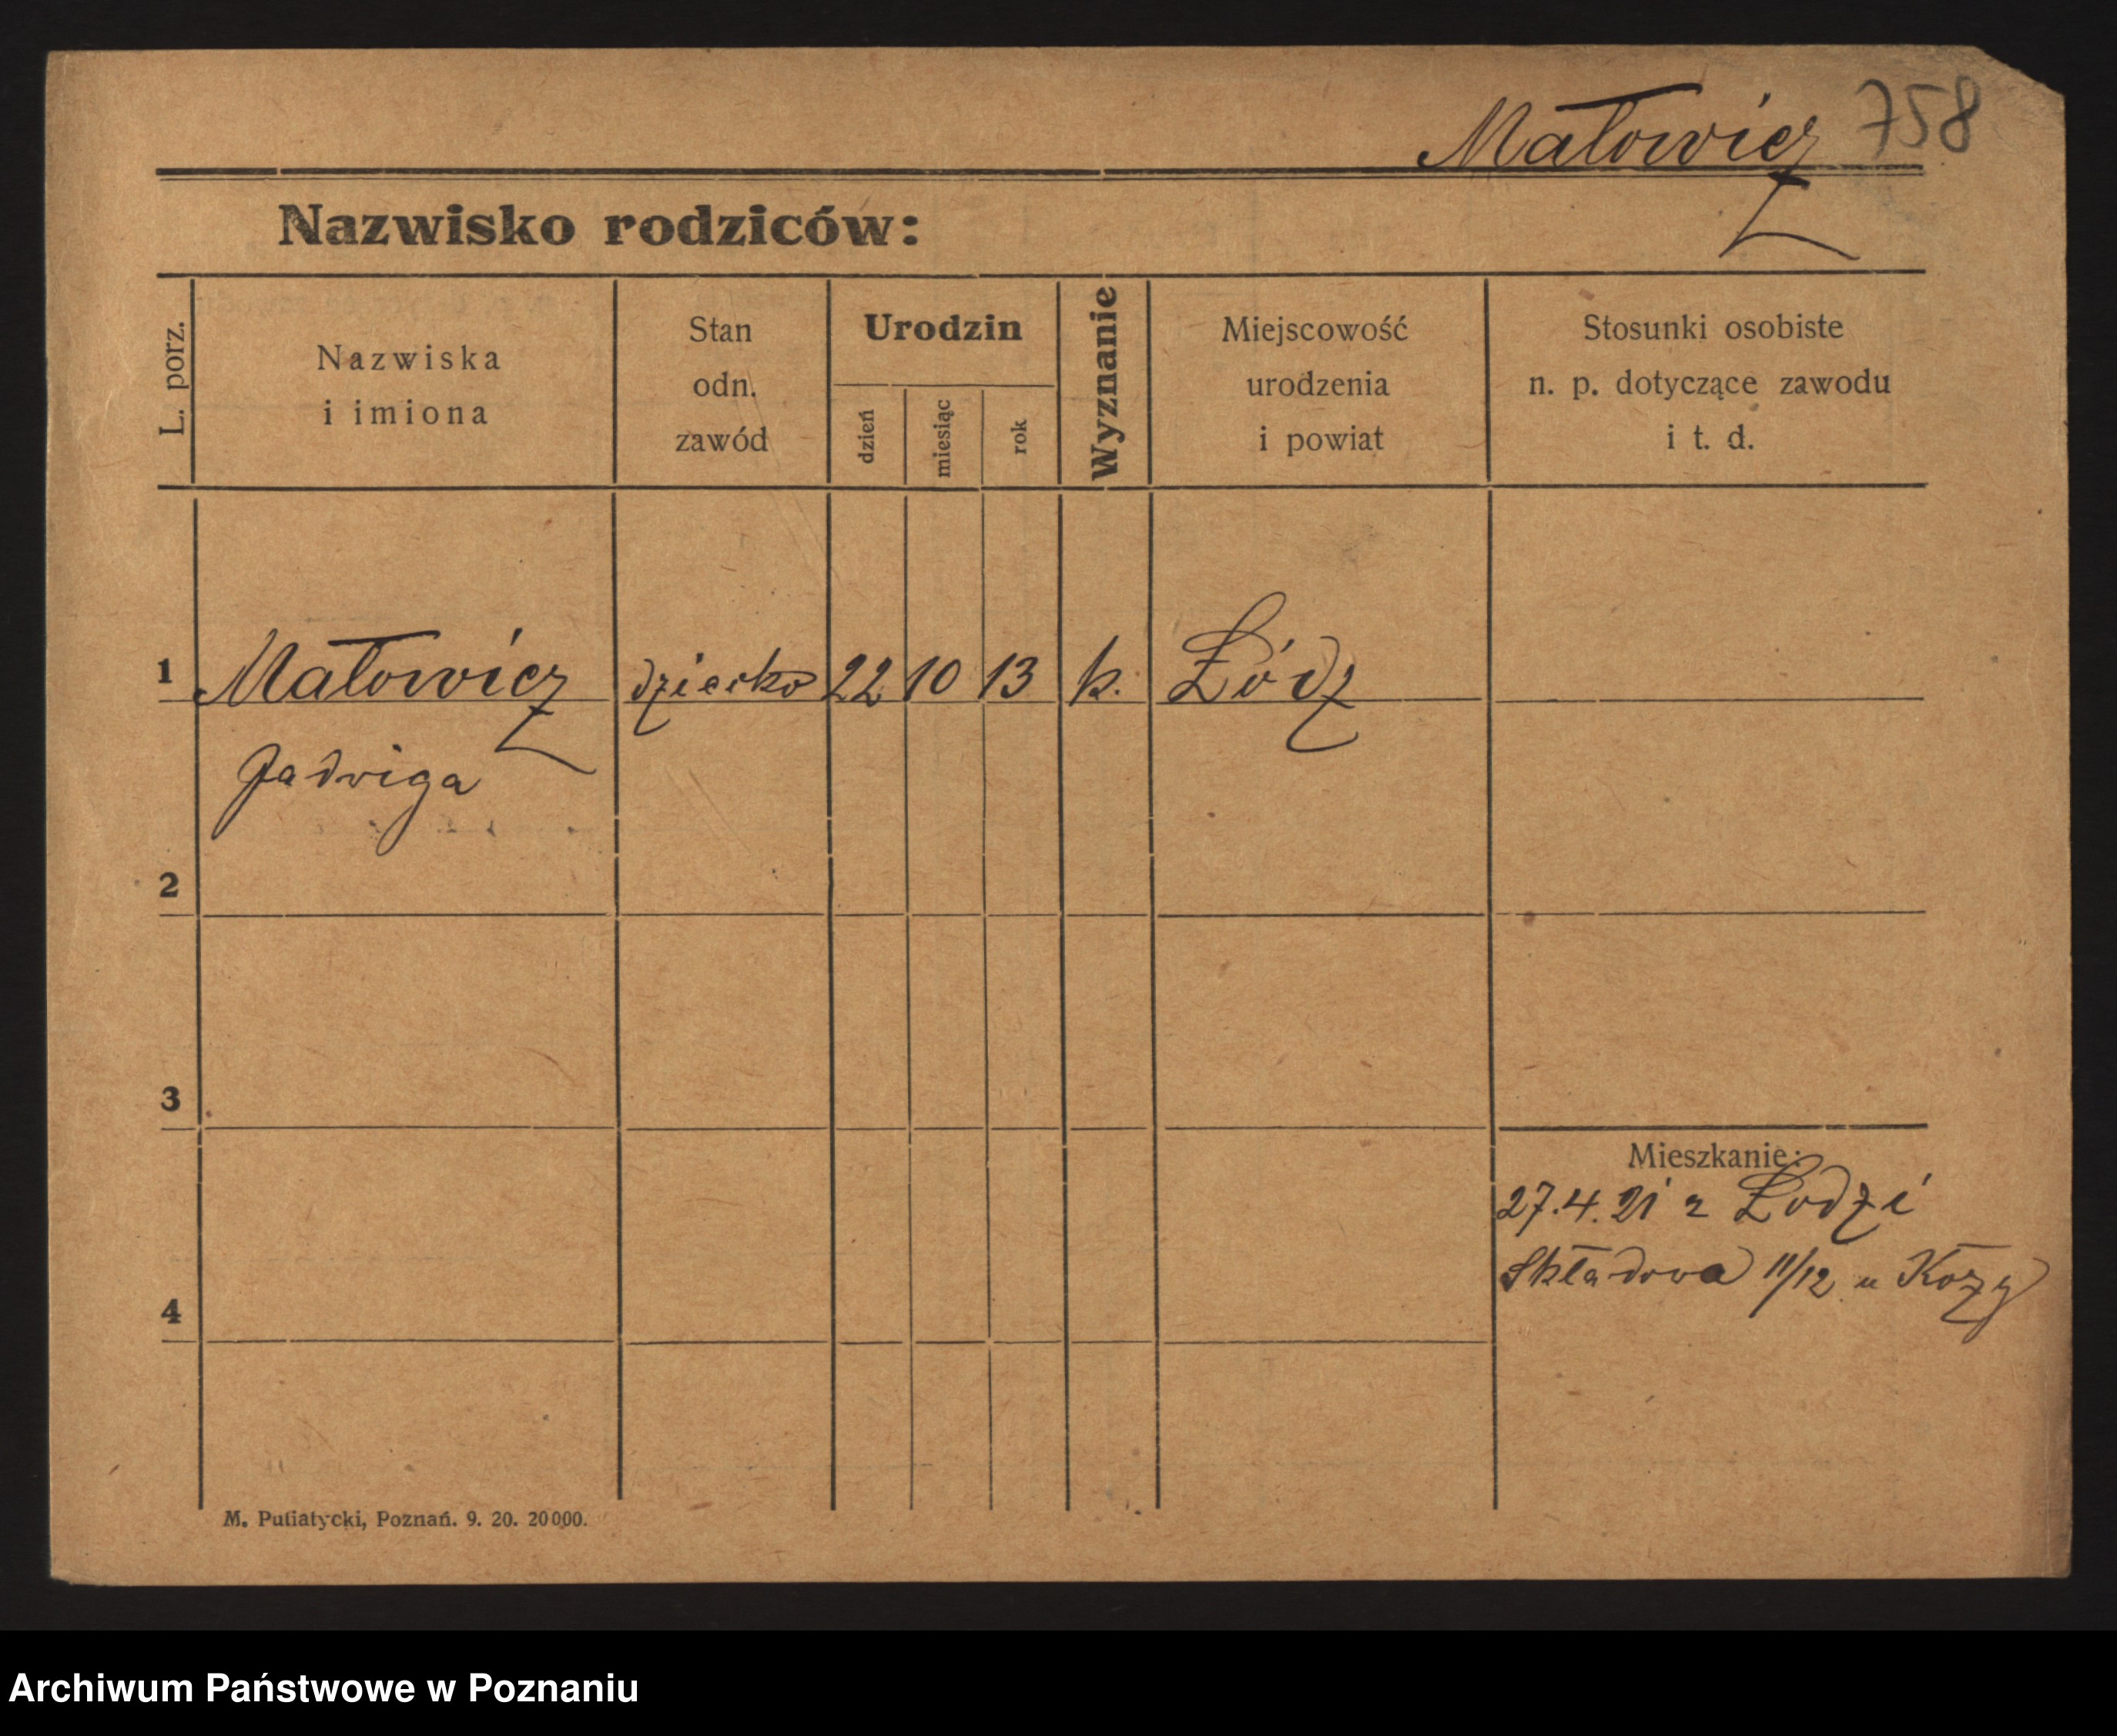 Małowicz 758
Nazwisko rodziców:
L. porz.
Nazwiska
i imiona
Stan
odn.
zawód
Urodzin
dzień
miesiąc
rok
Wyznanie
Miejscowość
urodzenia
i powiat
Stosunki osobiste
n. p. dotyczące zawodu
i t. d.
1 Małowicz dziecko 22 10 13 k. Łódź
Jadwiga
2
3
Mieszkanie:
27.4.21 z Łodzi
Składowa 11/12 u Kozy
4
M. Putiatycki, Poznań. 9. 20. 20000.
Archiwum Państwowe w Poznaniu